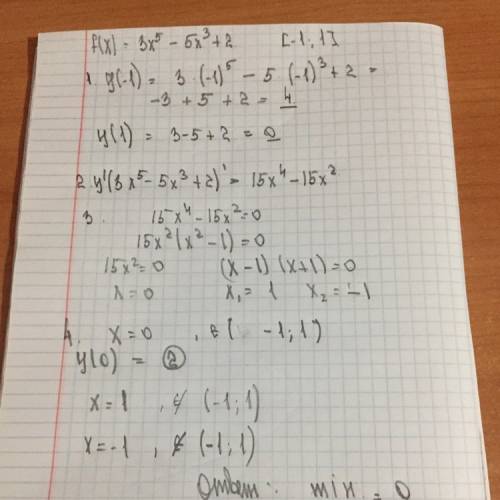 f(x) = 3x⁵ - 5x³ + 2 [-1; 1]
1. y(-1) = 3·(-1)⁵ - 5·(-1)³ + 2 =
-3 + 5 + 2 = 4
y(1) = 3 - 5 + 2 = 0
2. y'(3x⁵ - 5x³ + 2)' = 15x⁴ - 15x²
3. 15x⁴ - 15x² = 0
15x²(x² - 1) = 0
15x² = 0 (x - 1)(x + 1) = 0
x = 0 x₁ = 1 x₂ = -1
4. x = 0 , ∈ ( -1; 1)
y(0) = 2
x = 1 , ∉ (-1; 1)
x = -1 , ∉ (-1; 1)
Ответ: min = 0